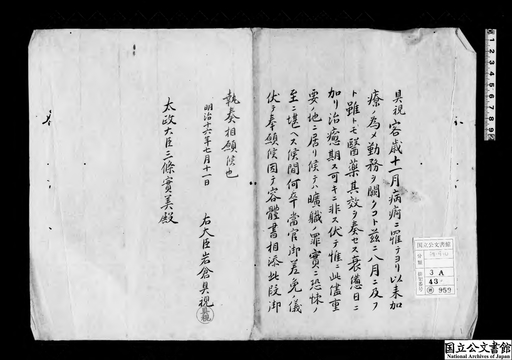 具視客歳十一月病痾ニ罹テヨリ以来加
療ノ為メ勤務ヲ闕クコト茲ニ八月ニ及フ
ト雖トモ醫藥其效ヲ奏セス衰憊日ニ
加リ治癒期ス可キニ非ス伏テ惟ニ此儘重
要ノ地ニ居リ候テハ曠職ノ罪實ニ恐悚ノ
至ニ堪ヘス候間何卒當官御差免儀
伏テ奉願候因テ容體書相添此段御
執奏相願候也
明治十六年七月十一日
右大臣岩倉具視
太政大臣三條實美殿
国立公文書館
3 A
43
959
国立公文書館
National Archives of Japan